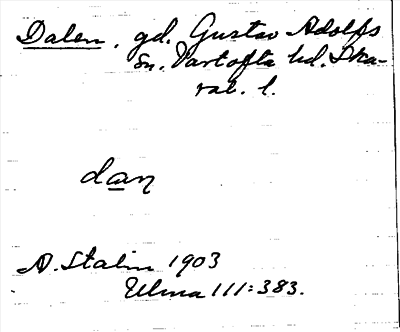 Dalen, gd. Gustav Adolfs
sn. Vartofta hd. Ska-
rab. l.
dan
A. Stalin 1903
Ulma 111:383.